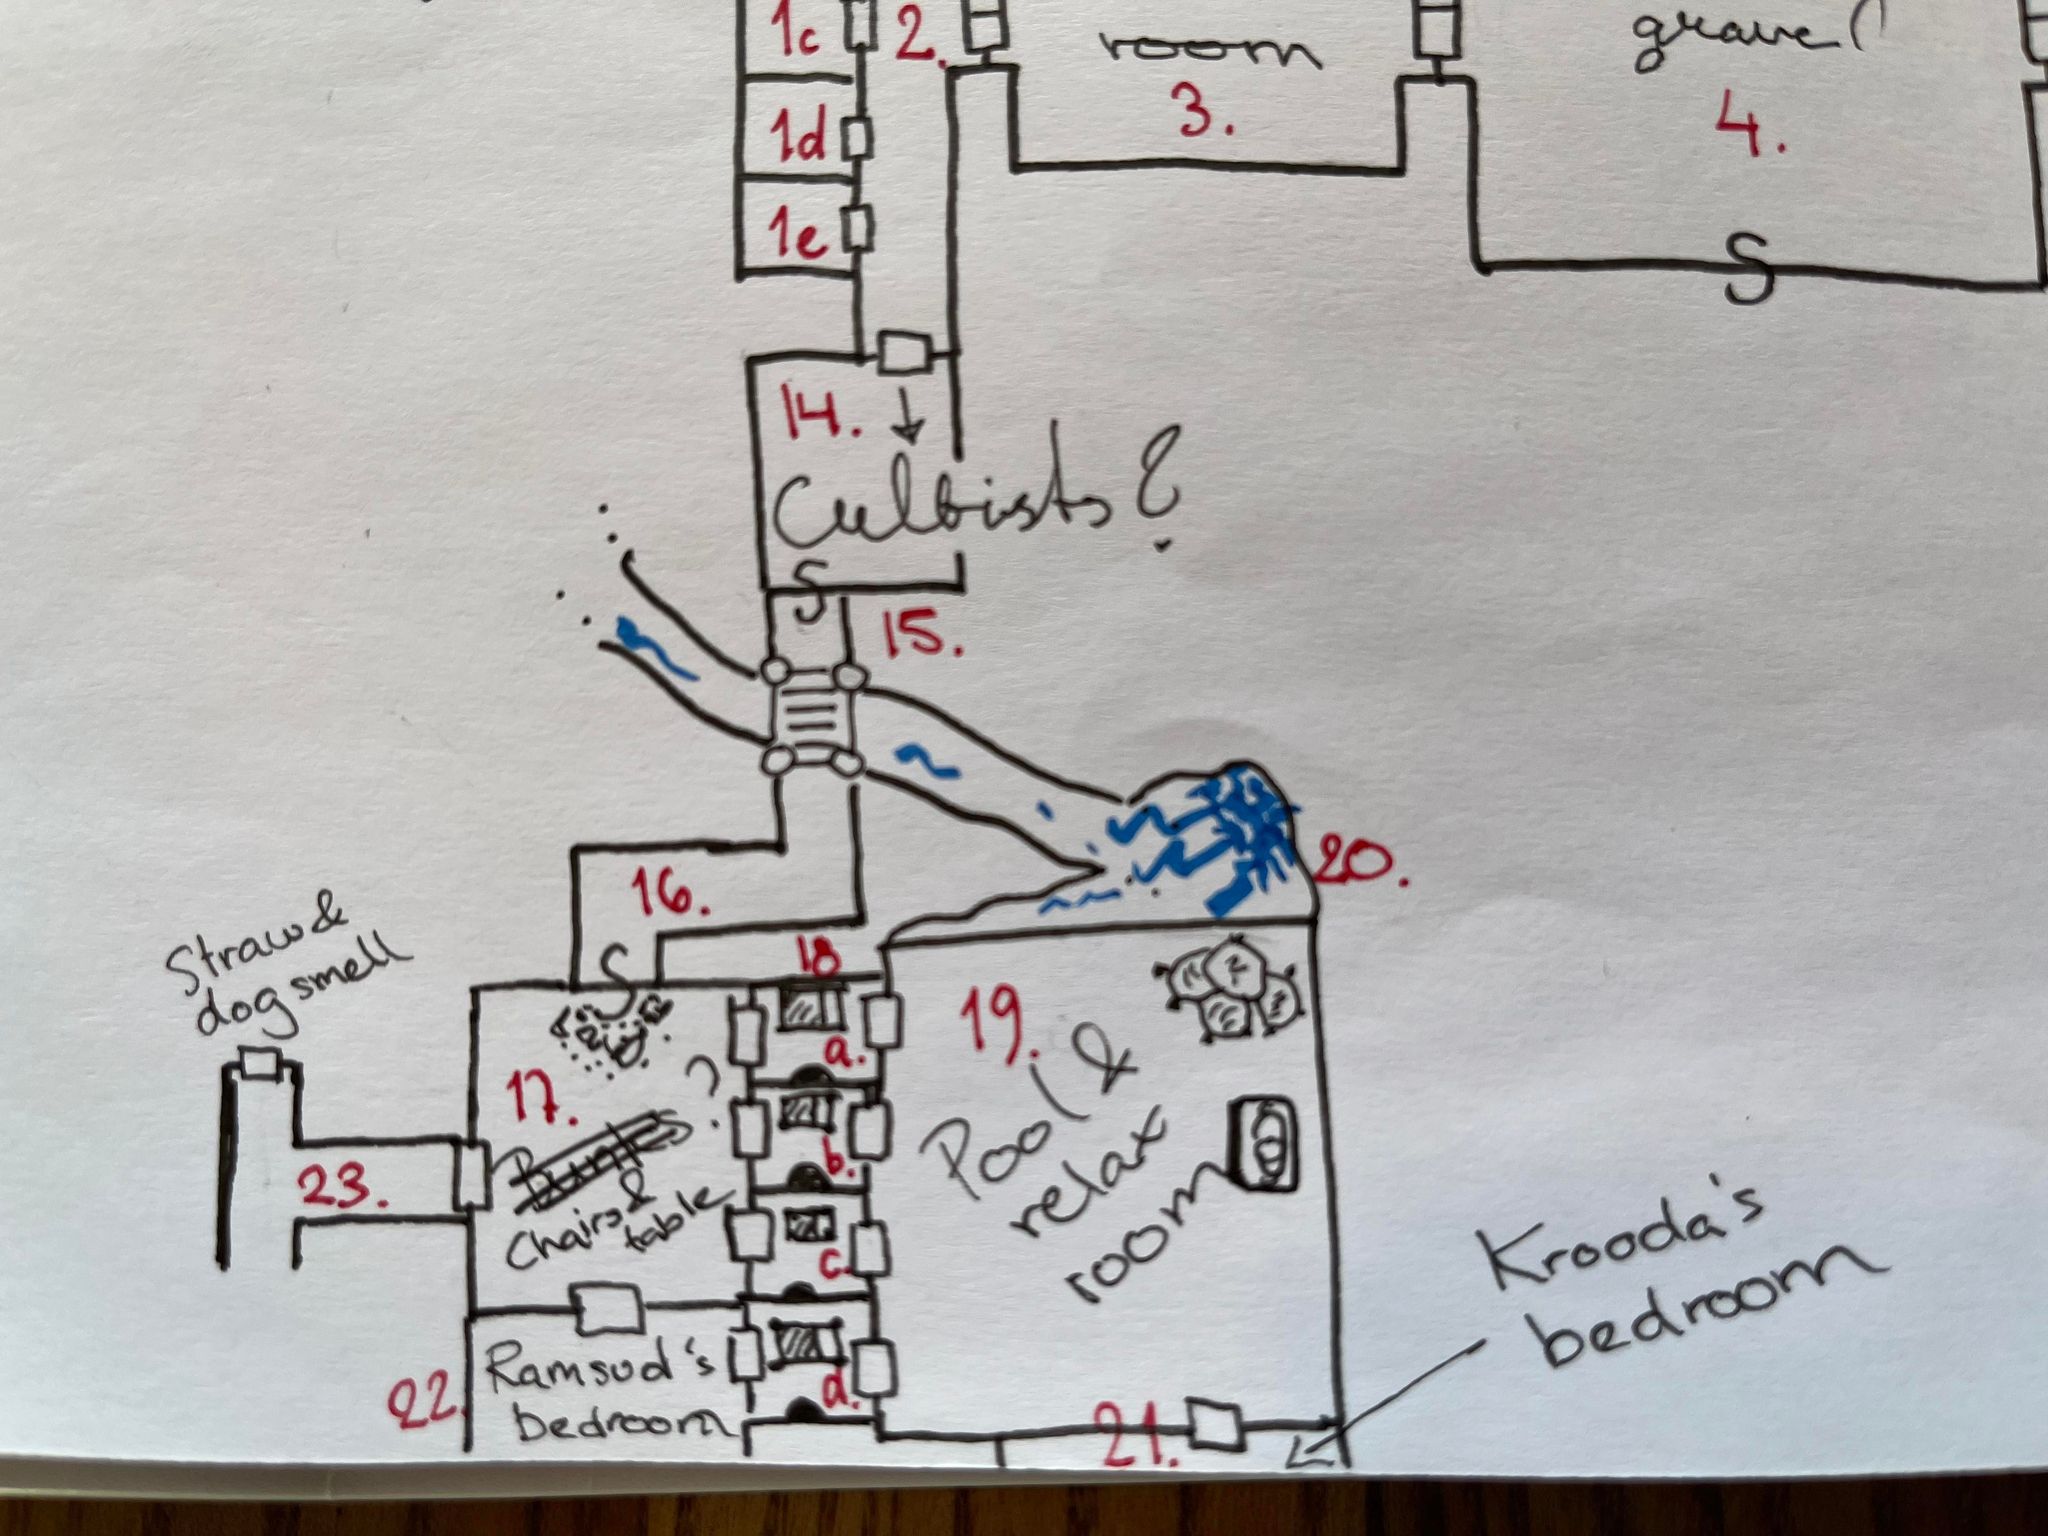 1c
2.
room
grave(
1d
3.
4.
1e
S
14.
Cultists?
S
15.
20.
16.
Straw &
dog smell
18
S
19.
a.
17.
?
Pool &
relax
room
b.
23.
Chairs &
table
c.
Krooda's
bedroom
Ramsud's
bedroom
22.
d.
21.